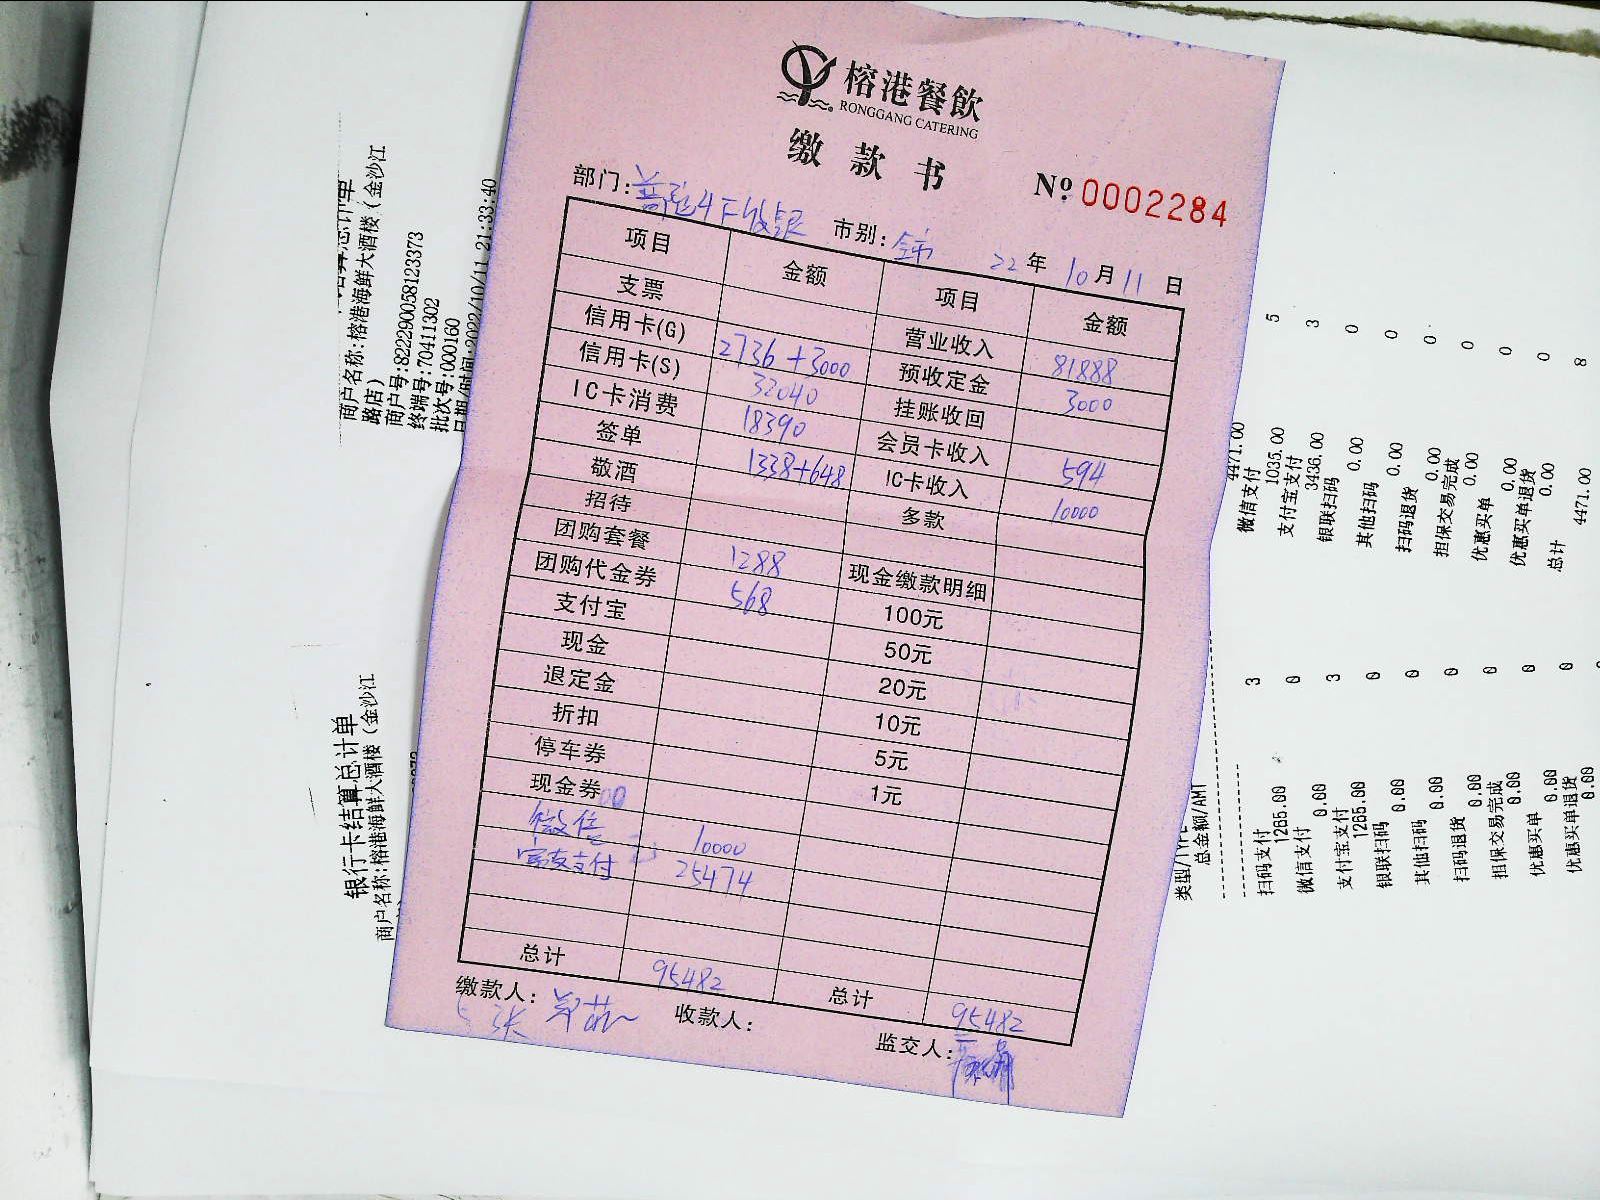 榕港餐飲
RONGGANG CATERING
缴款书
№ 0002284
部门: 普陀4F收银 市别: 全市 22年10月11日
项目 金额 项目 金额
支票 营业收入 81888
信用卡(G) 2736+3000 预收定金 3000
信用卡(S) 32040 挂账收回
IC卡消费 18390 会员卡收入 594
签单 1338+648 IC卡收入 10000
敬酒 多款
招待
团购套餐 1288 现金缴款明细
团购代金券 568 100元
支付宝 50元
现金 20元
退定金 10元
折扣 5元
停车券 1元
现金券
微信 10000
支付 25474
总计 95482 总计 95482
缴款人: 张
收款人:
监交人:
商户名称:榕港海鲜大酒楼（金沙江
路店）
商户号:822290058123373
终端号:70411302
批次号:000160
日期/时间:2022/10/11 21:33:40
银行卡结算总计单
商户名称:榕港海鲜大酒楼（金沙江
4471.00
微信支付 5
1035.00
支付宝支付 3
3436.00
银联扫码 0
0.00
其他扫码 0
0.00
扫码退货 0
0.00
担保交易完成 0
0.00
优惠买单 0
0.00
优惠买单退货 0
0.00
总计 8
4471.00
总金额/AMT
扫码支付 3
1265.00
微信支付 0
0.00
支付宝支付 3
1265.00
银联扫码 0
0.00
其他扫码 0
0.00
扫码退货 0
0.00
担保交易完成 0
0.00
优惠买单 0
0.00
优惠买单退货 0
0.00